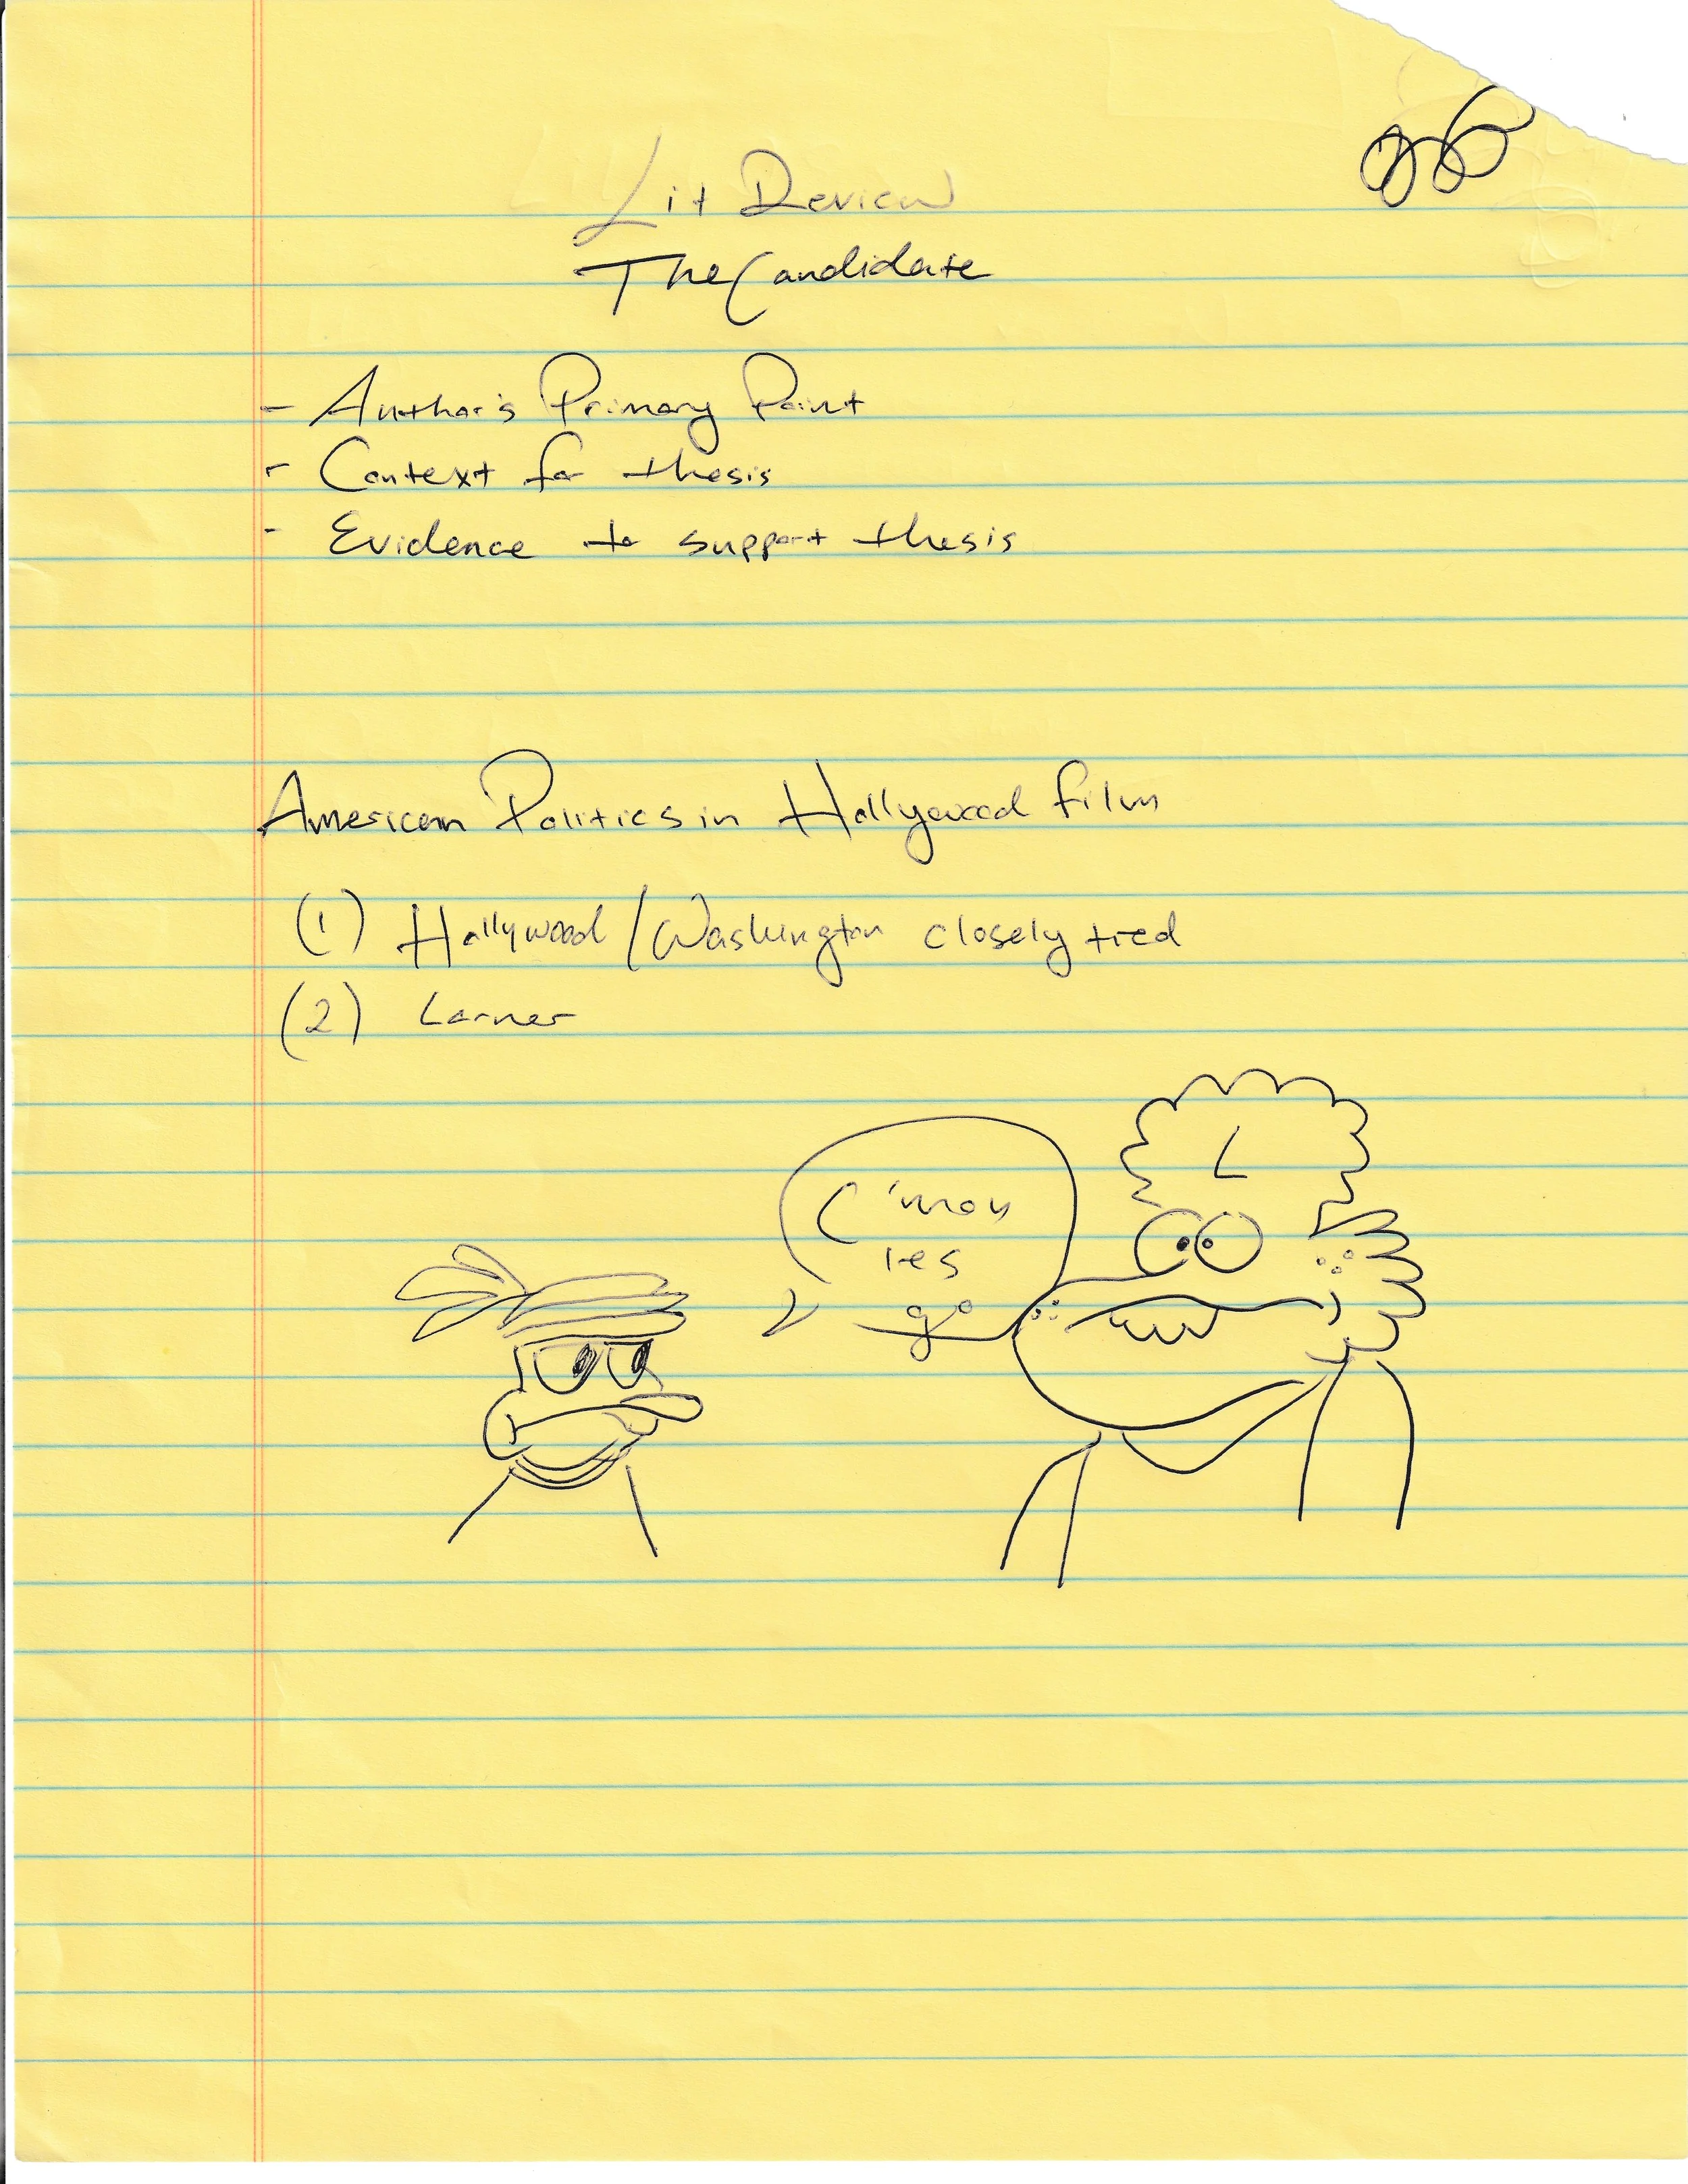 Lit Review
The Candidate
- Author's Primary Point
- Context for thesis
- Evidence to support thesis
American Politics in Hollywood Film
(1) Hollywood/Washington closely tied
(2) Larner
L
C'mon
les
go